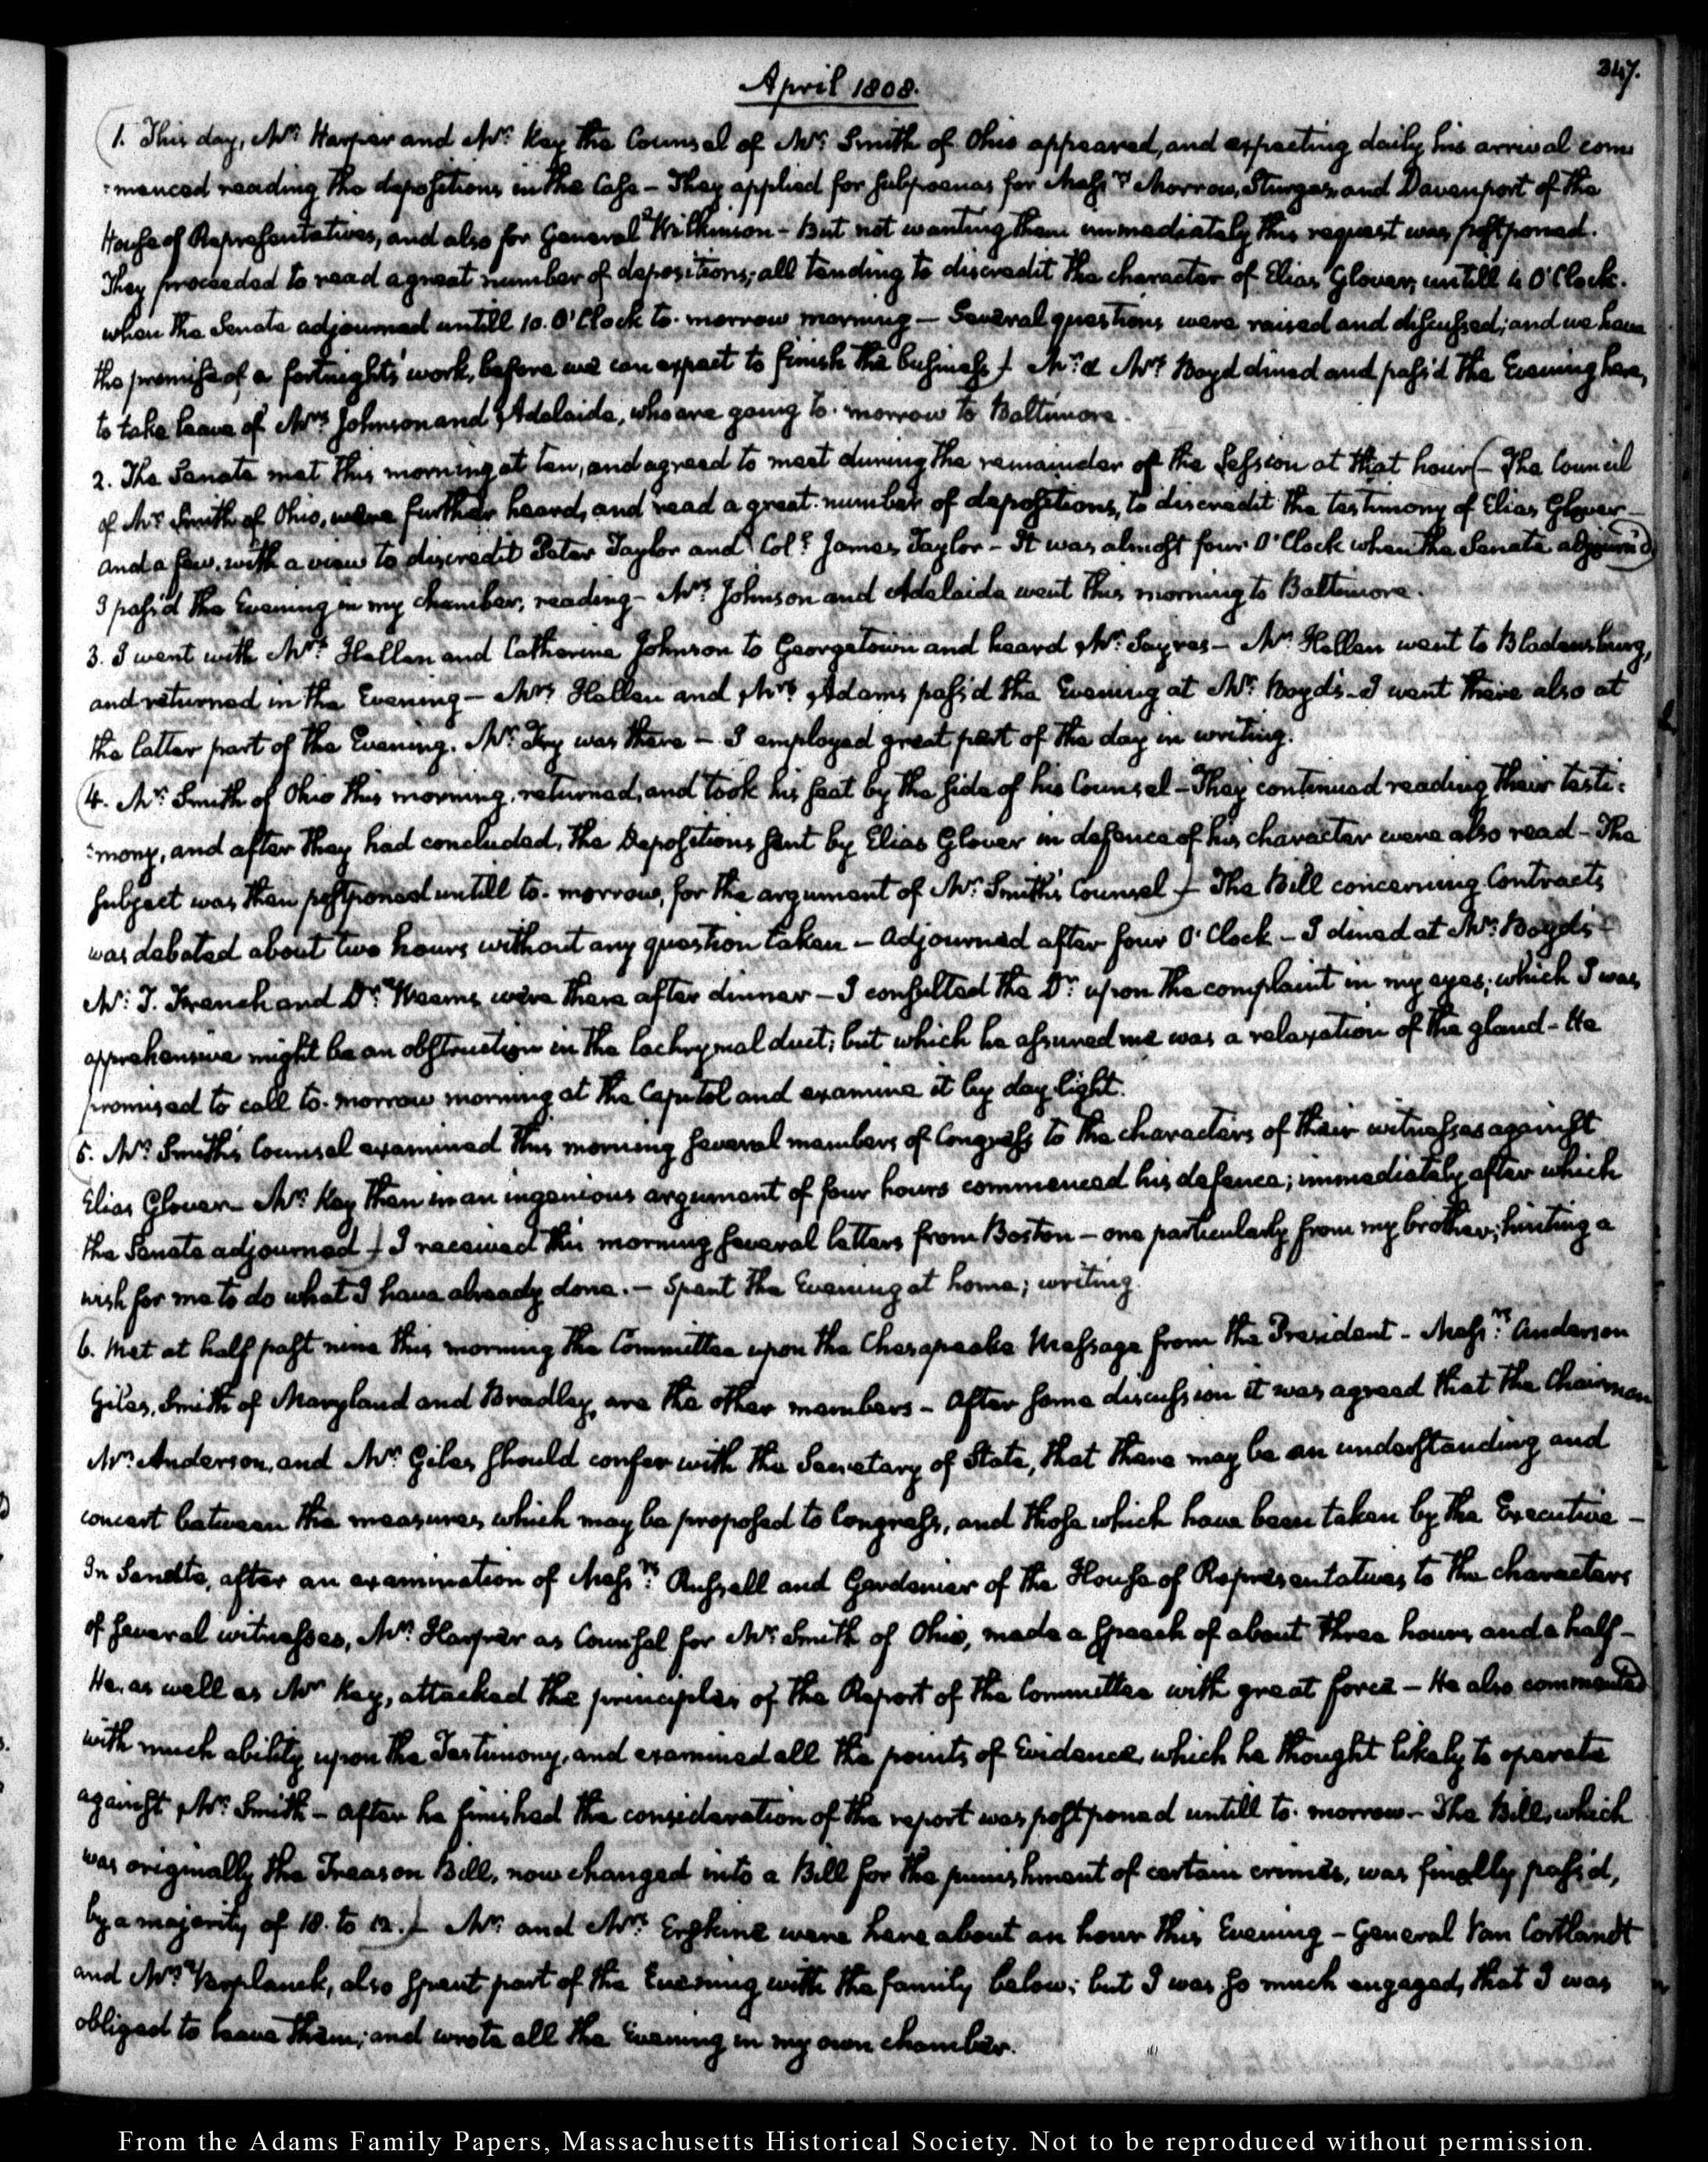 347.
April 1808.
1. This day, Mr. Harper and Mr. Key the Counsel of Mr. Smith of Ohio appeared, and expecting daily his arrival com
:menced reading the depositions in the Case – They applied for subpoenas for Messrs. Morrow, Sturges and Davenport of the
House of Representatives, and also for General Wilkinson – But not wanting them immediately this request was postponed.
They proceeded to read a great number of depositions; all tending to discredit the character of Elias Glover, untill 4 O'Clock.
when the Senate adjourned untill 10. O'Clock to-morrow morning – Several questions were raised and discussed; and we have
the promise of a fortnight's work, before we can expect to finish the business) – Mr. & Mrs. Boyd dined and pass'd the Evening here,
to take leave of Mrs. Johnson and Adelaide, who are going to-morrow to Baltimore.
2. The Senate met this morning at ten, and agreed to meet during the remainder of the Session at that hour (– The Council
of Mr. Smith of Ohio, were further heard, and read a great number of depositions, to discredit the testimony of Elias Glover –
and a few, with a view to discredit Peter Taylor and Coll. James Taylor – It was almost four O'Clock when the Senate adjourn'd)
I pass'd the Evening in my chamber, reading – Mrs. Johnson and Adelaide went this morning to Baltimore.
3. I went with Mrs. Hellen and Catherine Johnson to Georgetown and heard Mr. Sayres – Mr. Hellen went to Bladensburg,
and returned in the Evening – Mrs. Hellen and Mrs. Adams pass'd the Evening at Mr. Boyd's – I went there also at
the latter part of the Evening. Mr. Fry was there – I employed great part of the day in writing.
(4. Mr. Smith of Ohio this morning, returned, and took his seat by the side of his Counsel – They continued reading their testi:
:mony, and after they had concluded, the Depositions sent by Elias Glover in defence of his character were also read – The
subject was then postponed untill to-morrow, for the argument of Mr. Smith's Counsel) – The Bill concerning Contracts
was debated about two hours without any question taken – Adjourned after four O'Clock – I dined at Mr. Boyd's –
Mr. T. French and Dr. Weems were there after dinner – I consulted the Dr. upon the complaint in my eyes; which I was
apprehensive might be an obstruction in the lachrymal duct; but which he assured me was a relaxation of the gland – He
promised to call to-morrow morning at the Capitol and examine it by day light.
(5. Mr. Smith's Counsel examined this morning several members of Congress to the characters of their witnesses against
Elias Glover – Mr. Key then in an ingenious argument of four hours commenced his defence; immediately after which
the Senate adjourned) – I received this morning several letters from Boston – one particularly from my brother; hinting a
wish for me to do what I have already done. – Spent the Evening at home; writing.
(6. Met at half past nine this morning the Committee upon the Chesapeake Message from the President – Messrs. Anderson
Giles, Smith of Maryland and Bradley, are the other members – After some discussion it was agreed that the Chairman
Mr. Anderson, and Mr. Giles should confer with the Secretary of State, that there may be an understanding and
concert between the measures which may be proposed to Congress, and those which have been taken by the Executive –
In Senate, after an examination of Messrs. Russell and Gardenier of the House of Representatives to the characters
of several witnesses, Mr. Harper as Counsel for Mr. Smith of Ohio, made a speech of about three hours and a half –
He, as well as Mr. Key, attacked the principles of the Report of the Committee with great force – He also commented)
with much ability upon the Testimony, and examined all the points of Evidence, which he thought likely to operate
against Mr. Smith – after he finished the consideration of the report was postponed untill to-morrow – The Bill, which
was originally the Treason Bill, now changed into a Bill for the punishment of certain crimes, was finally pass'd,
by a majority of 18. to 12.) – Mr. and Mrs. Erskine were here about an hour this Evening – General Van Cortlandt
and Mr. Verplanck, also spent part of the Evening with the family below; but I was so much engaged, that I was
obliged to leave them; and wrote all the Evening in my own chamber.
From the Adams Family Papers, Massachusetts Historical Society. Not to be reproduced without permission.